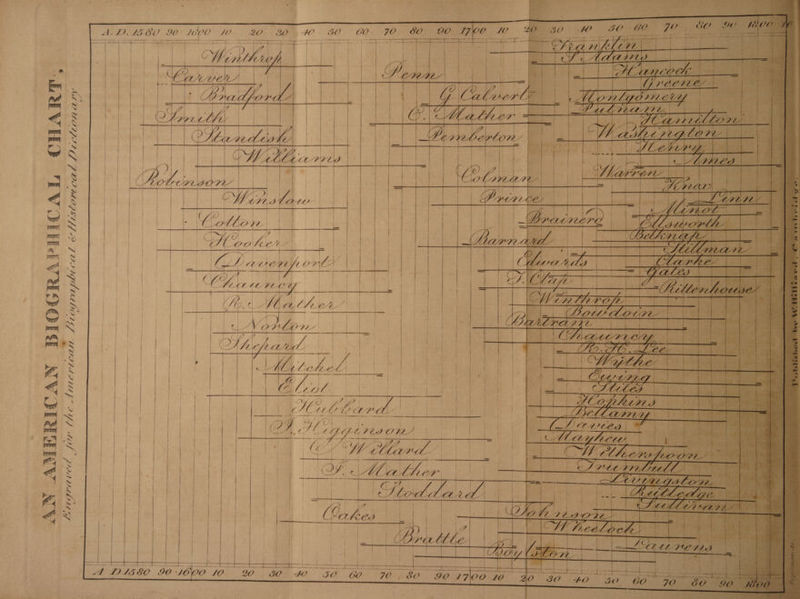 AN AMERICAN BIOGRAPHICAL CHART,
Engraved for the American Biographical & Historical Dictionary
A.D. 1580 90 1600 10 20 30 40 50 60 70 80 90 1700 10 20 30 40 50 60 70 80 90 1800
Franklin
Winthrop
S. Adams
Carver
Penn
Hancock
Greene
Bradford
G. Calvert
Montgomery
Putnam
Smith
C. Mather
Hamilton
Standish
Pemberton
Washington
Henry
Williams
Ames
Robinson
Colman
Warren
Knox
Winslow
Prince
Linn
Minot
Cotton
Brainerd
Ellsworth
Belknap
Hooker
Barnard
Stillman
Davenport
Edwards
Clarke
Gates
Chauncy
T. Clap
Rittenhouse
R. Mather
Winthrop
Bowdoin
Norton
Bartram
Chauncy
Shepard
R. H. Lee
Mitchel
Wythe
Ewing
Eliot
Stiles
Hubbard
Hopkins
Bellamy
J. Higginson
Davies
Mayhew
Willard
Witherspoon
I. Mather
Trumbull
Livingston
Stoddard
Rutledge
Sullivan
Oakes
Johnson
Wheelock
Brattle
Laurens
Boylston
A.D. 1580 90 1600 10 20 30 40 50 60 70 80 90 1700 10 20 30 40 50 60 70 80 90 1800
Published by W Hilliard Cambridge